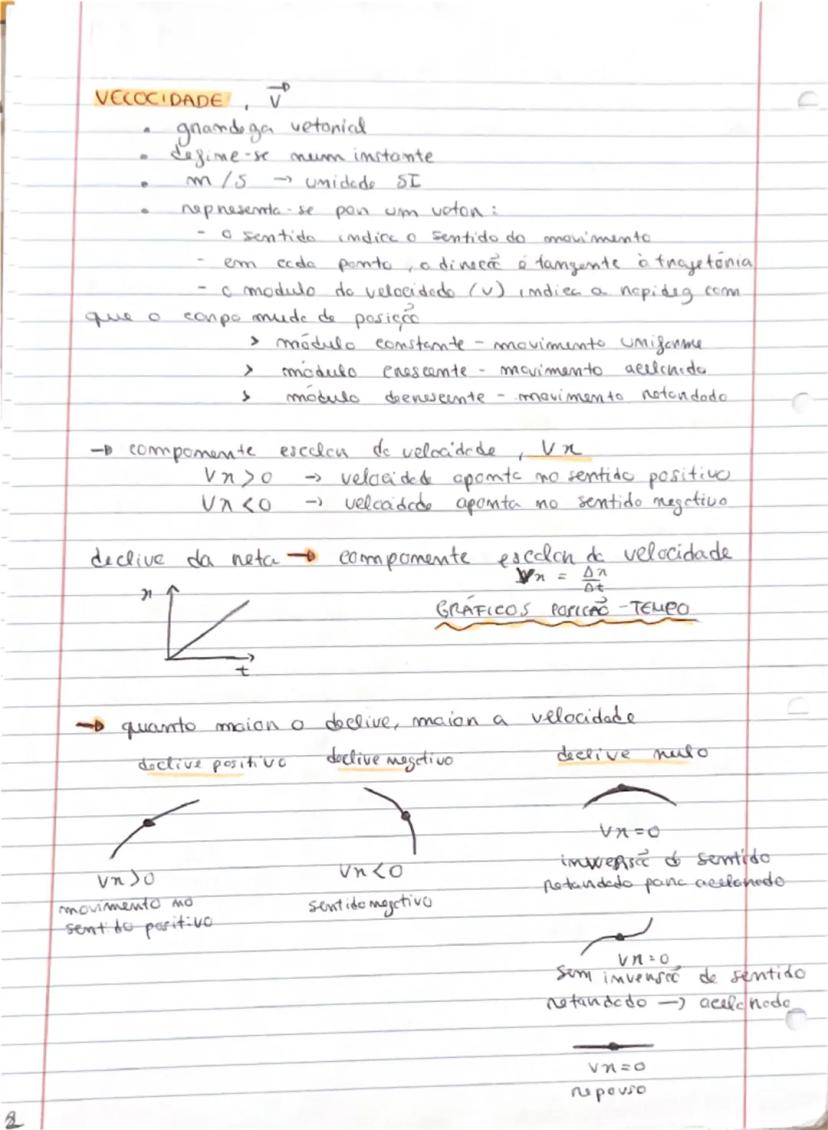 VELOCIDADE, v⃗
• grandeza vetorial
• define-se num instante
• m/s → unidade SI
• representa-se por um vetor:
- o sentido indica o sentido do movimento
- em cada ponto, a direção é tangente à trajetória
- o modulo da velocidade (v) indica a rapidez com
que o corpo muda de posição
> módulo constante - movimento uniforme
> módulo crescente - movimento acelerado
> módulo decrescente - movimento retardado
→ componente escalar da velocidade, Vx
Vx > 0 → velocidade aponta no sentido positivo
Vx < 0 → velocidade aponta no sentido negativo
declive da reta → componente escalar da velocidade
Vx = Δx/Δt
x
GRÁFICOS POSIÇÃO-TEMPO
t
→ quanto maior o declive, maior a velocidade
declive positivo declive negativo declive nulo
Vx=0
Vx>0 Vx<0 inversão de sentido
retardado para acelerado
movimento no sentido negativo
sentido positivo
Vx=0
Sem inversão de sentido
retardado → acelerado
Vx=0
repouso
2